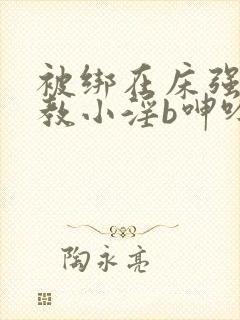 被绑在床强
教小淫b呻吟
陶永亮